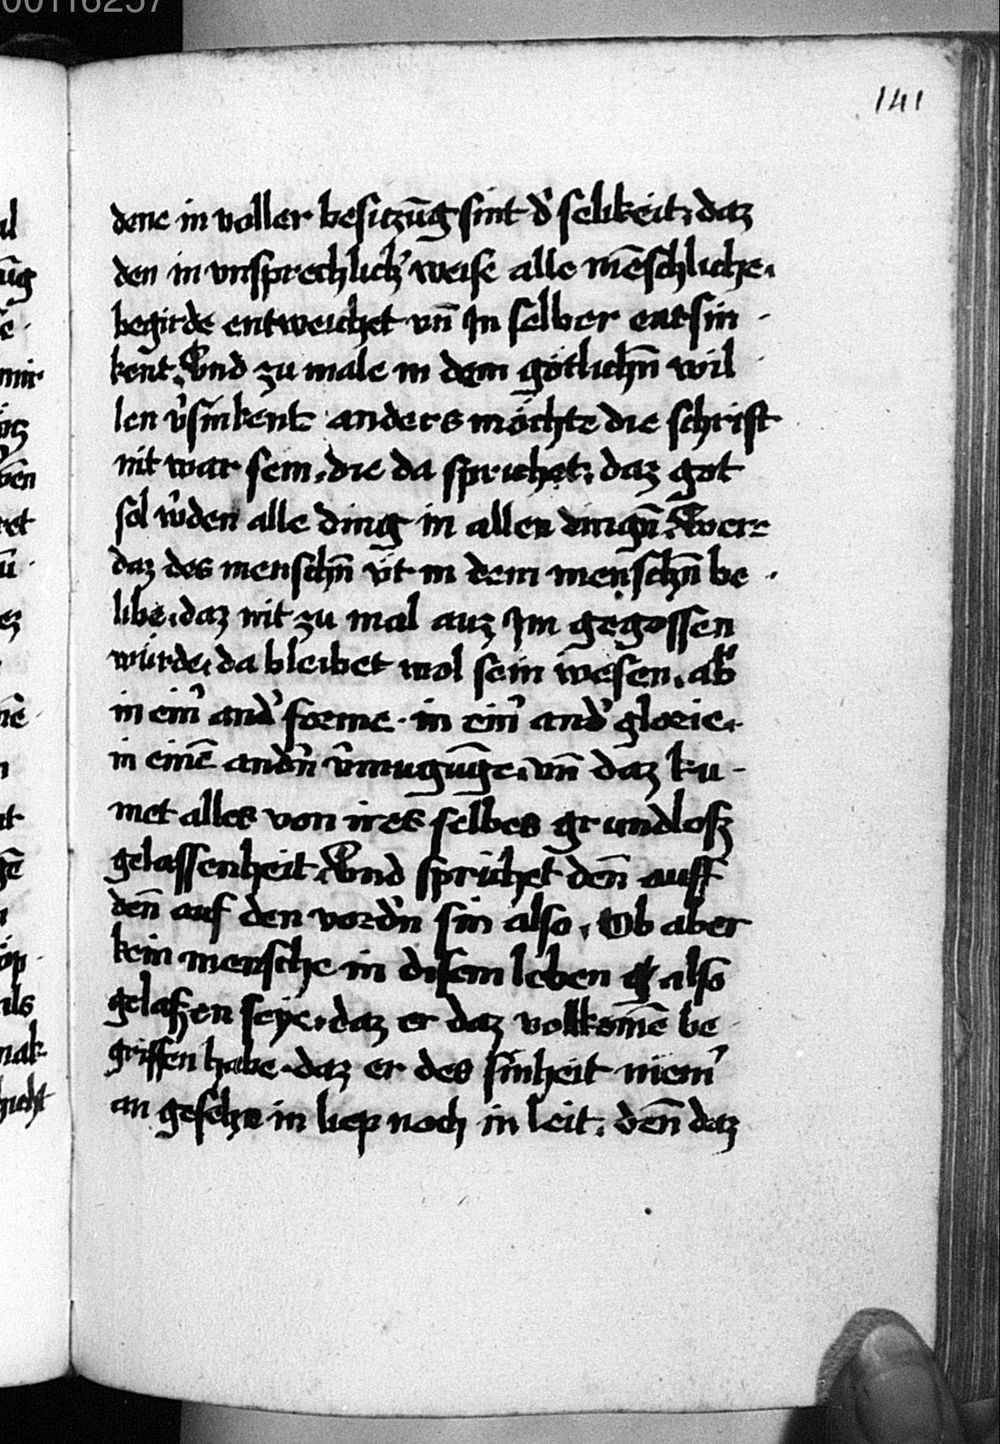 141
dene in voller besiczūg sint d' selikeit, daz
den in vnsprechlich' weise alle mēschliche
begirde entweichet vn̄ In selber entsin
kent. Vnd zu male in dem götlichn̄ wil
len v'sinkent anders möchte die schrift
nit war sein, die da sprichet, daz got
sol w'den alle ding in allen dingn̄. Wer
daz des menschn̄ üt in dem menschn̄ be
libe, daz nit zu mal auz Im gegossen
würde, da bleibet wol sein wesen, ab'
in ein' and' forme. in ein' and' glorie.
in einē andn̄ v'mugūge, vn̄ daz ku
met alles von ires selbes grundlosz
gelassenheit, Vnd sprichet den̄ auff
den̄ auf den vord'n sin also, Ob aber
kein mensche in disem leben also
gelaszen seye, daz er daz volkomē be
griffen habe, daz er des sinheit niem'
an gesehe in liep noch in leit, den̄ daz